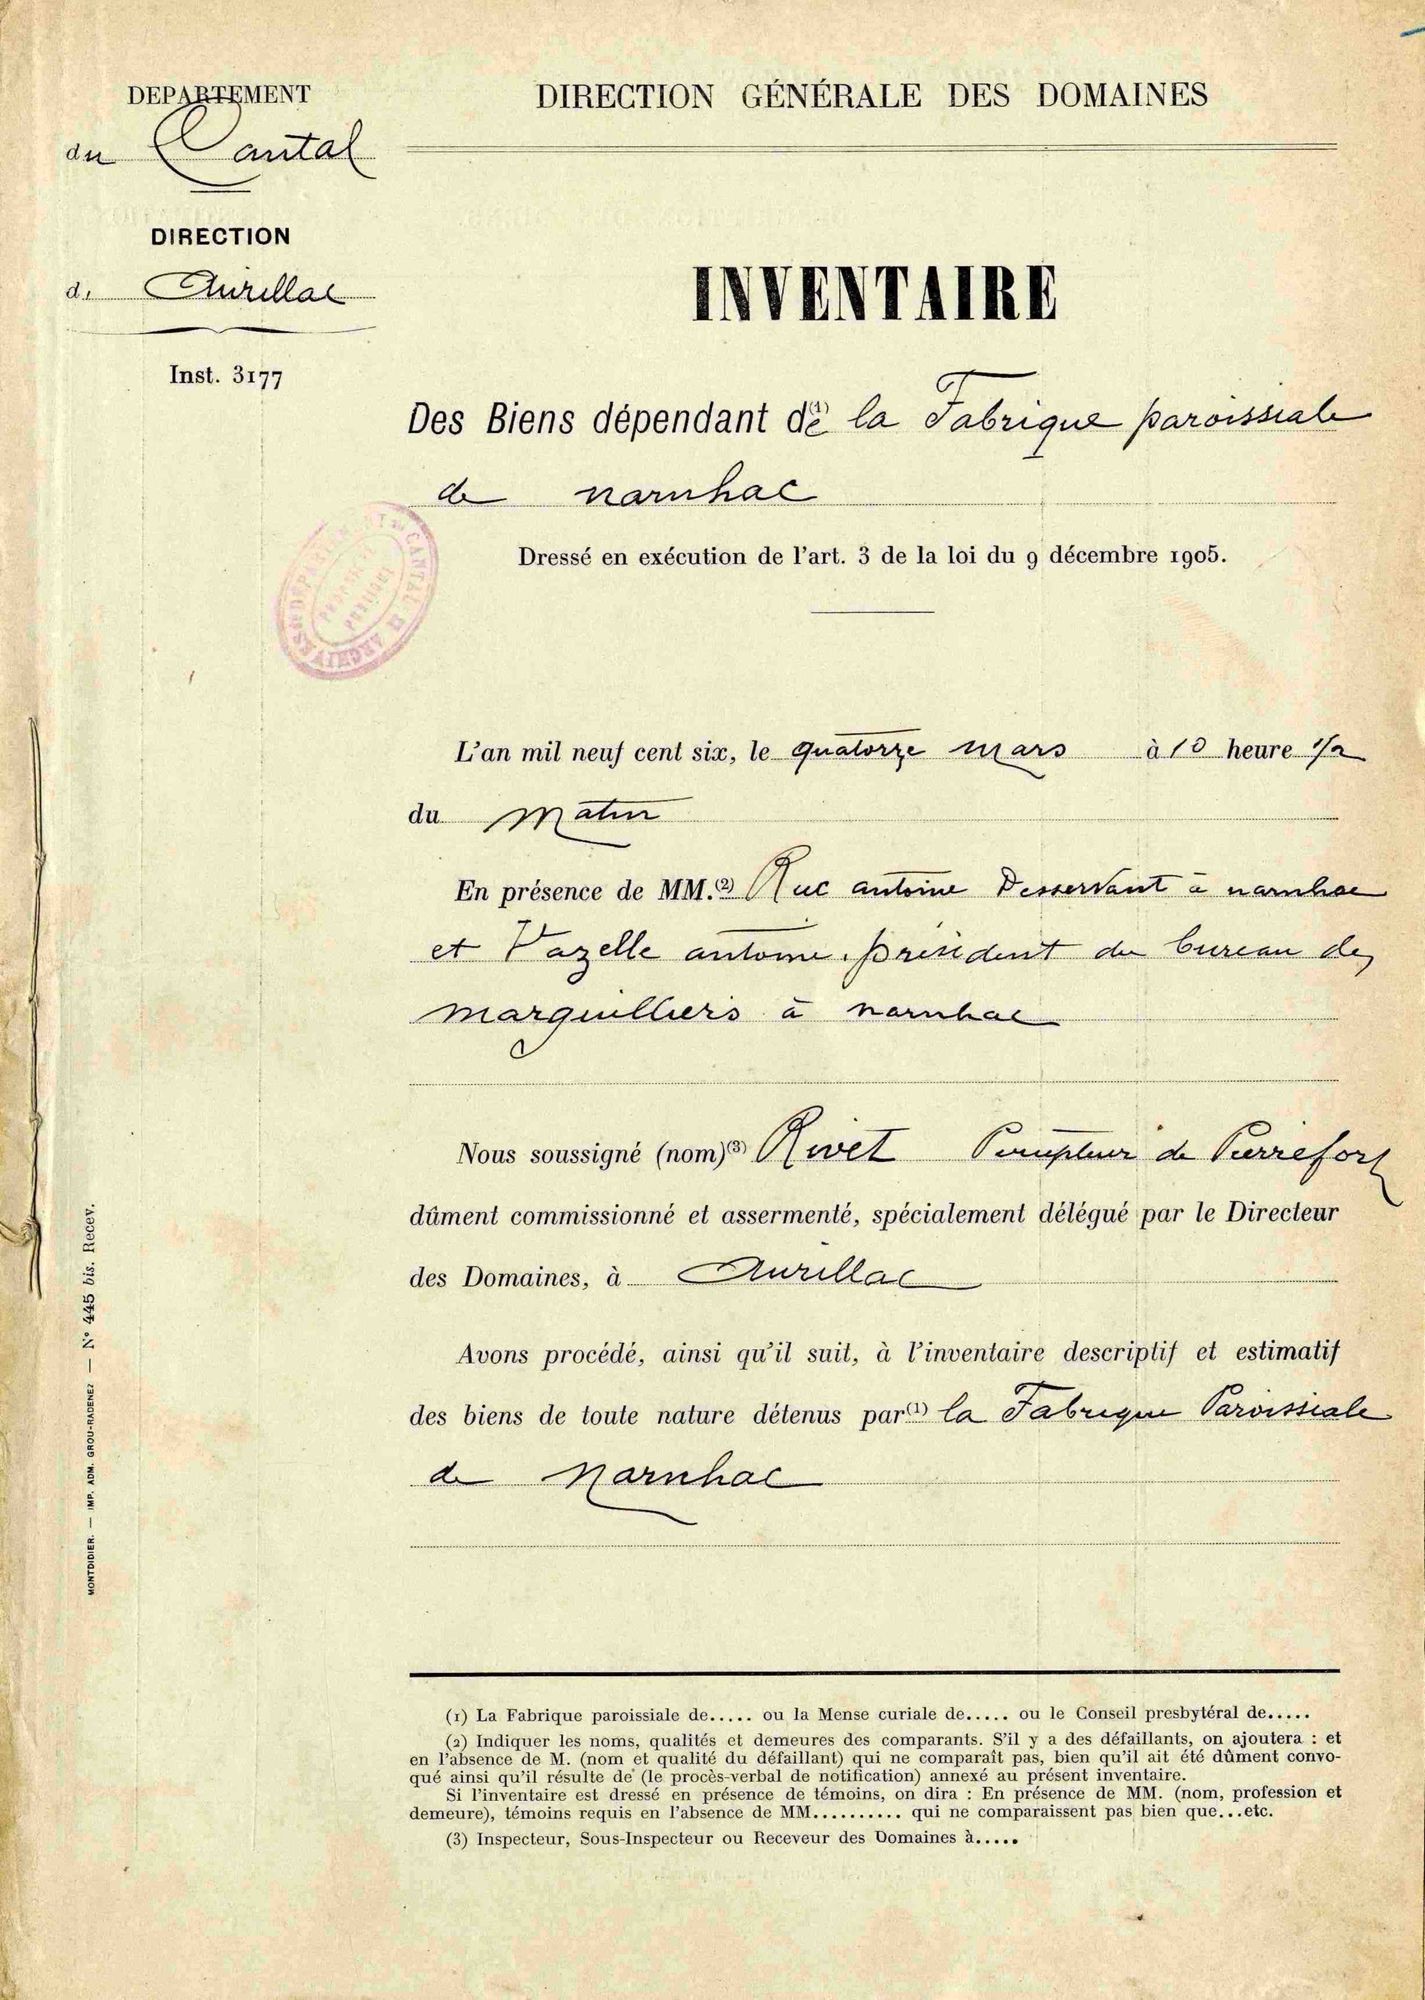 DEPARTEMENT
du Cantal
DIRECTION
d' Aurillac
Inst. 3177
DIRECTION GÉNÉRALE DES DOMAINES
INVENTAIRE
Des Biens dépendant de (1) la Fabrique paroissiale
de narnhac
Dressé en exécution de l'art. 3 de la loi du 9 décembre 1905.
DEPARTEMENT DU CANTAL
ARCHIVES
L'an mil neuf cent six, le quatorze mars à 10 heure 1/2
du Matin
En présence de MM. (2) Ruc antoine Desservant à narnhac
et Vazelle antoine, président du bureau des
marguilliers à narnhac
Nous soussigné (nom) (3) Rivet Percepteur de Pierrefort
dûment commissionné et assermenté, spécialement délégué par le Directeur
des Domaines, à Aurillac
Avons procédé, ainsi qu'il suit, à l'inventaire descriptif et estimatif
des biens de toute nature détenus par (1) la Fabrique Paroissiale
de Narnhac
(1) La Fabrique paroissiale de..... ou la Mense curiale de..... ou le Conseil presbytéral de.....
(2) Indiquer les noms, qualités et demeures des comparants. S'il y a des défaillants, on ajoutera : et
en l'absence de M. (nom et qualité du défaillant) qui ne comparaît pas, bien qu'il ait été dûment convo-
qué ainsi qu'il résulte de (le procès-verbal de notification) annexé au présent inventaire.
Si l'inventaire est dressé en présence de témoins, on dira : En présence de MM. (nom, profession et
demeure), témoins requis en l'absence de MM.......... qui ne comparaissent pas bien que...etc.
(3) Inspecteur, Sous-Inspecteur ou Receveur des Domaines à.....
MONTDIDIER. — IMP. ADM. GROU-RADENEZ — N° 445 bis. Recev.